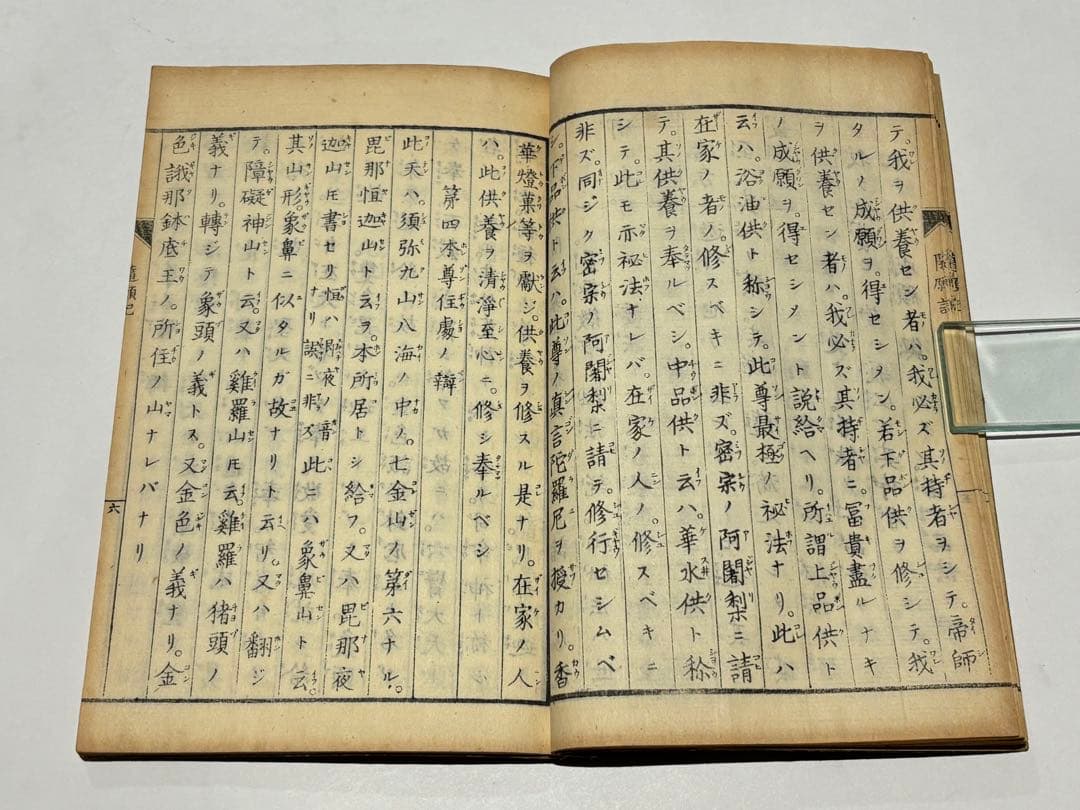 テ。我ヲ供養セン者ハ。我必ズ其持者ヲシテ。帝師
タルノ成願ヲ。得セシメン。若下品供ヲ修シテ。我
ヲ供養セン者ハ。我必ズ其持者ニ。冨貴盡ルナキ
ノ成願ヲ得セシメント説給ヘリ。所謂上品供ト
云ハ。浴油供ト称シテ。此尊最極ノ祕法ナリ。此ハ
在家ノ者ノ。修スベキニ非ズ。密宗ノ阿闍梨ニ請
テ。其供養ヲ奉ルベシ。中品供ト云ハ。華水供ト称
シテ。此モ亦祕法ナレバ。在家ノ人ノ。修スベキニ
非ズ。同ジク密宗ノ阿闍梨ニ請テ。修行セシムベ
シ。下品供ト云ハ。此尊ノ真言陀羅尼ヲ授カリ。香
華燈菓等ヲ獻ジ。供養ヲ修スル是ナリ。在家ノ人
ハ。此供養ヲ清淨至心ニ。修シ奉ルベシ
第四本尊住處ノ辯
此天ハ。須弥九山八海ノ中ノ。七金山ノ第六ナル。
毘那怛迦山ト云ヲ。本所居トシ給フ。又ハ毘那夜
迦山トモ書セリ怛ハ即夜ノ音ナリ誤ニ非ズ此ニハ象鼻山ト云。
其山形。象鼻ニ似タルガ故ナリト云リ。又ハ翻ジ
テ。障礙神山ト云。又ハ雞羅山トモ云雞羅ハ猪頭ノ
義ナリ。轉ジテ象頭ノ義トス。又金色ノ義ナリ。金
色誐那鉢底王ノ。所住ノ山ナレバナリ
六